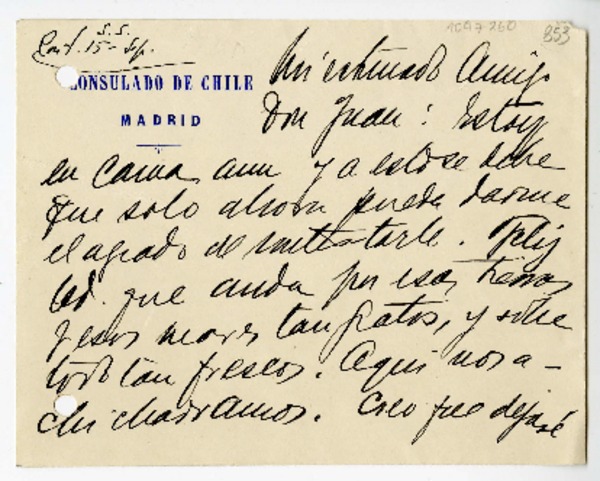 S.S.
Cont. 15-Sp.
1097260
853
CONSULADO DE CHILE
MADRID
Mi estimado Amigo
Don Juan: Estoy
en cama aun y a esto se debe
que solo ahora pueda darme
el agrado de contestarle. Feliz
Ud. que anda por esas tierras
y esos mares tan gratos, y sobre
todo tan frescos. Aqui nos a-
chicharramos. Creo que dejaré